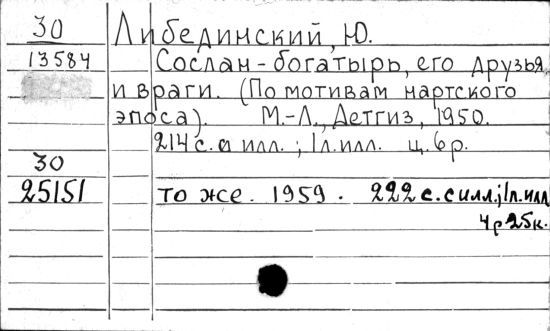 30 Либединский, Ю.
13584 Сослан-богатырь, его друзья
и враги. (По мотивам нартского
эпоса). М.-Л., Детгиз, 1950.
214 с. с илл.; 1 л. илл. ц. 6 р.
30
25151 То же. 1959. 222 с. с илл.; 1 л. илл
4 р 25 к.